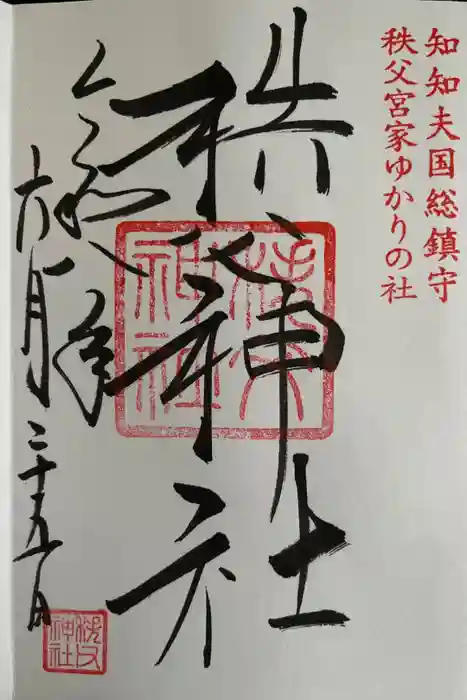 知知夫国総鎮守
秩父宮家ゆかりの社
秩父神社
秩父神社
令和
年
六月二十五日
秩父神社